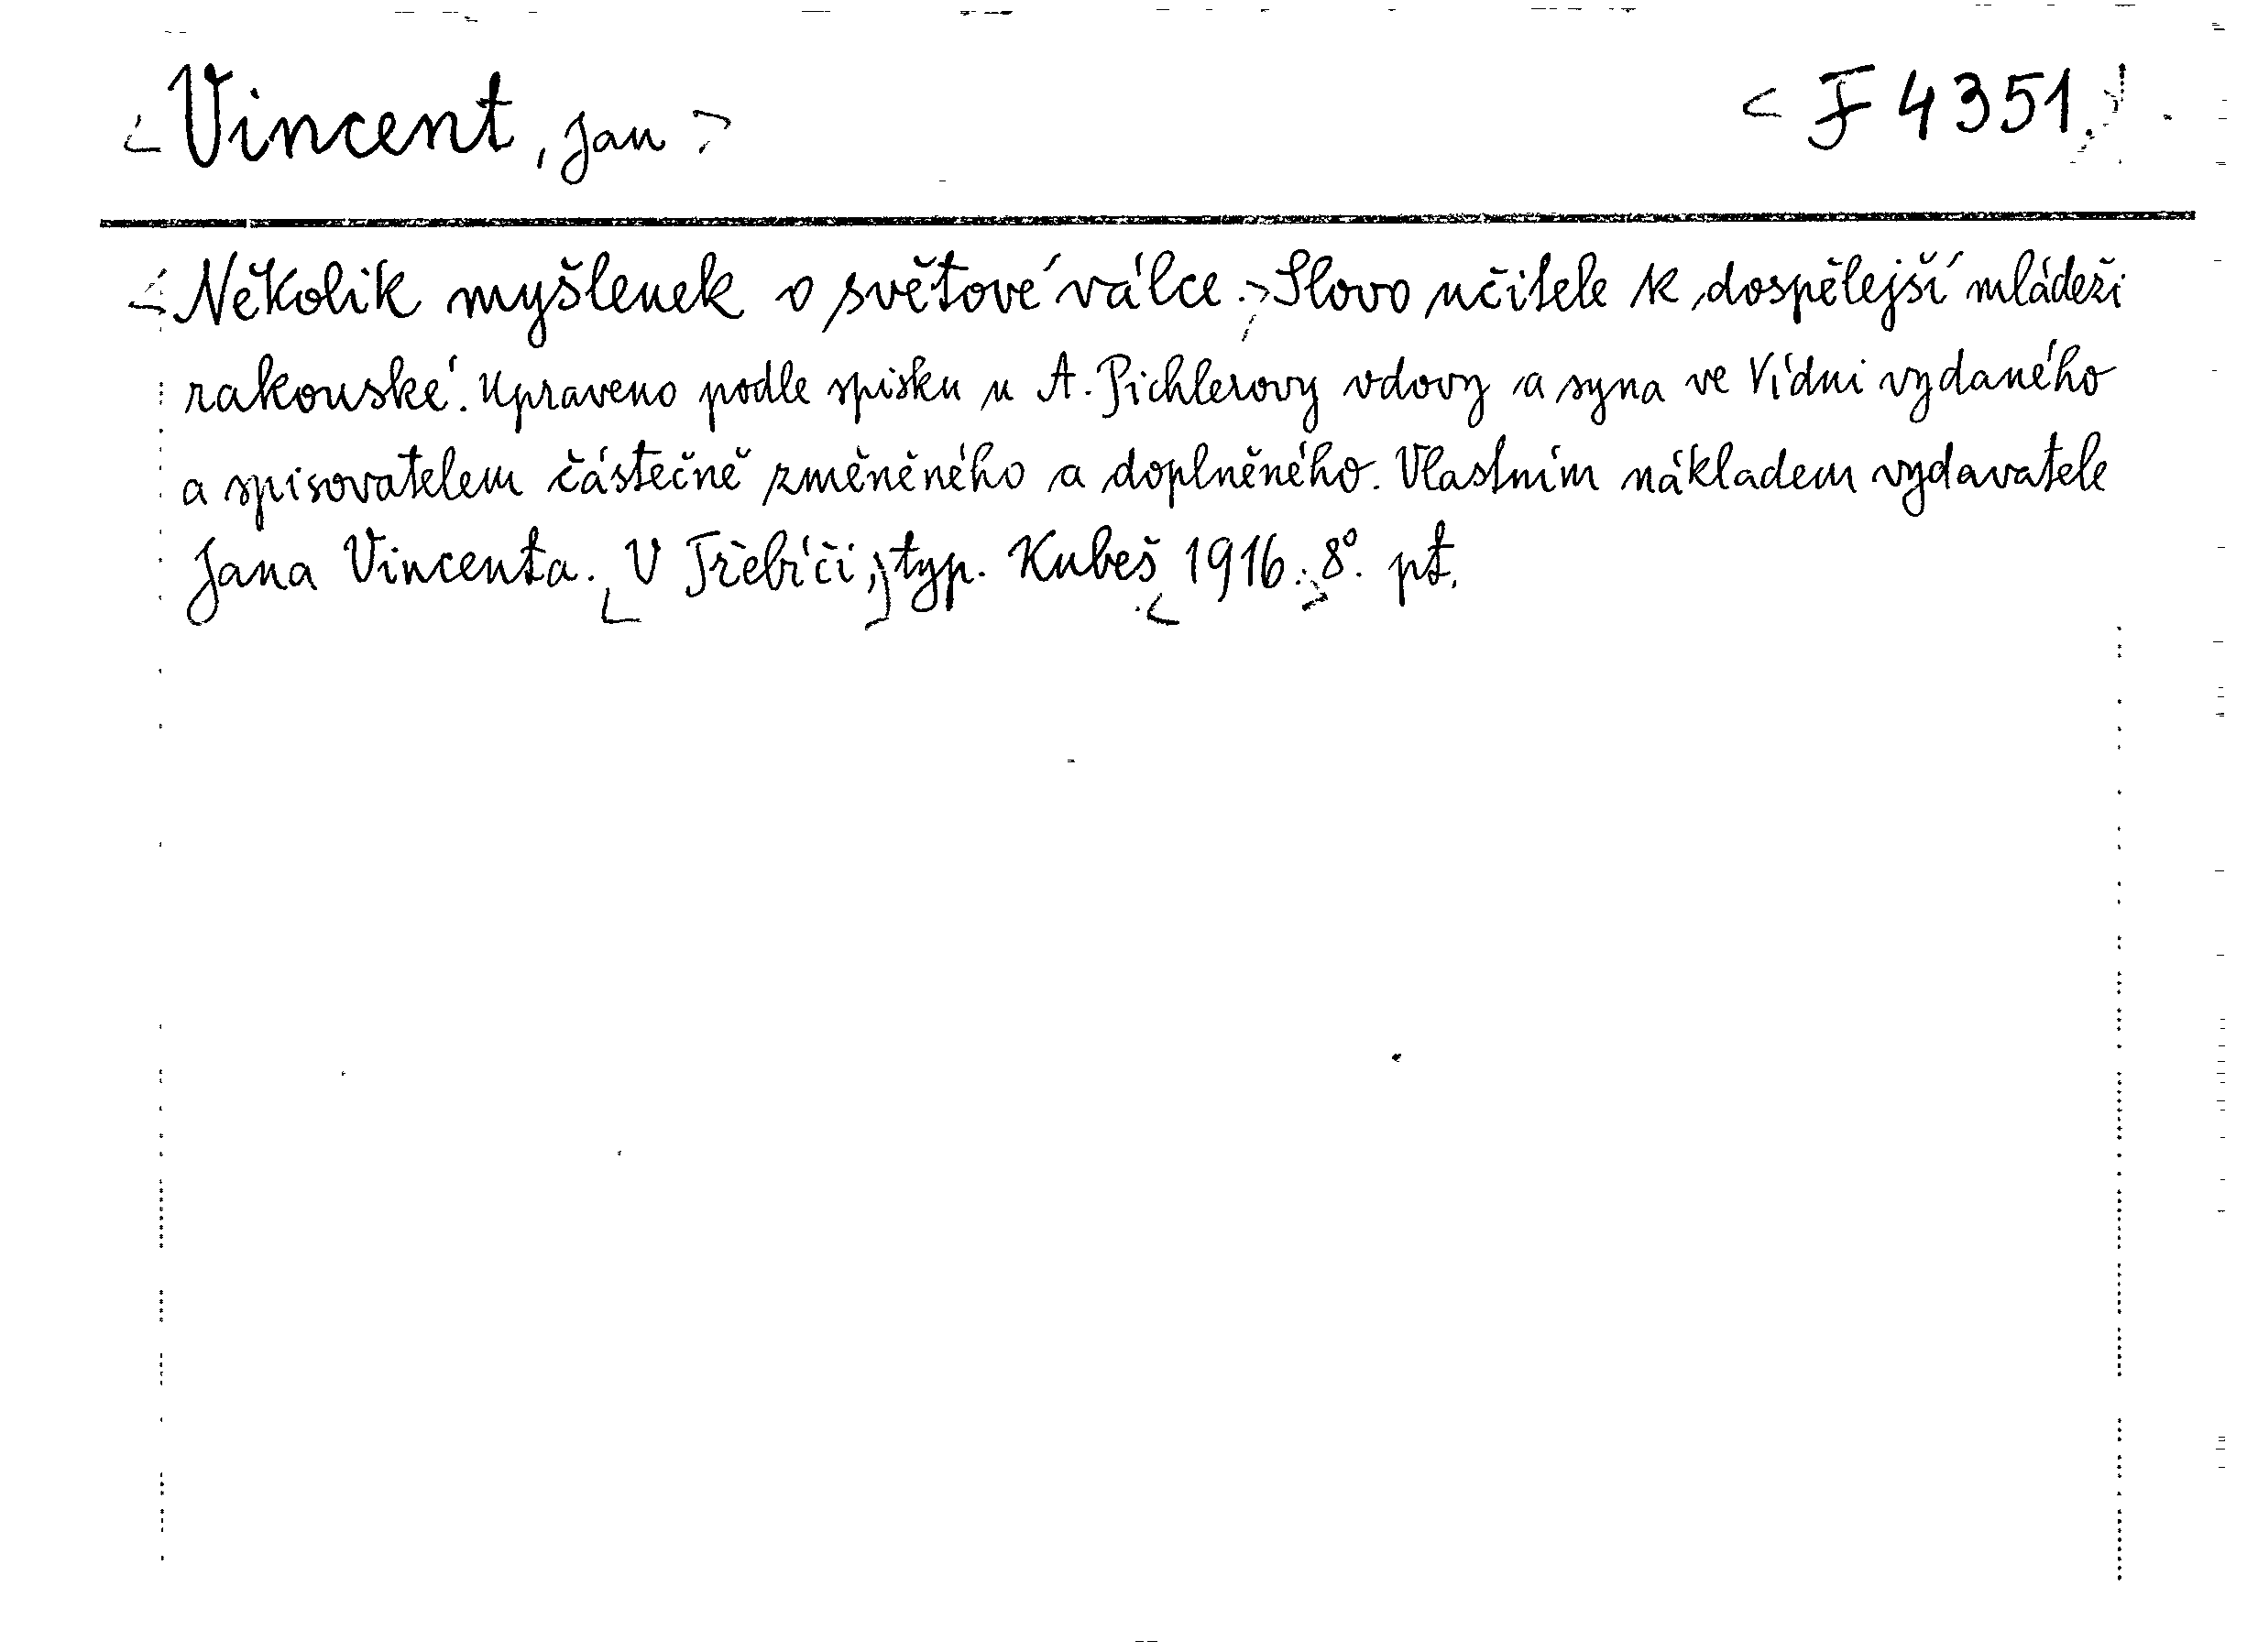 <Vincent, Jan> <F 4351.>
<Několik myšlenek o světové válce.> Slovo učitele k dospělejší mládeži
rakouské. Upraveno podle spisku u A. Pichlerovy vdovy a syna ve Vídni vydaného
a spisovatelem částečně změněného a doplněného. Vlastním nákladem vydavatele
Jana Vincenta. <V Třebíči,> typ. Kubeš <1916.> 8°. pt.